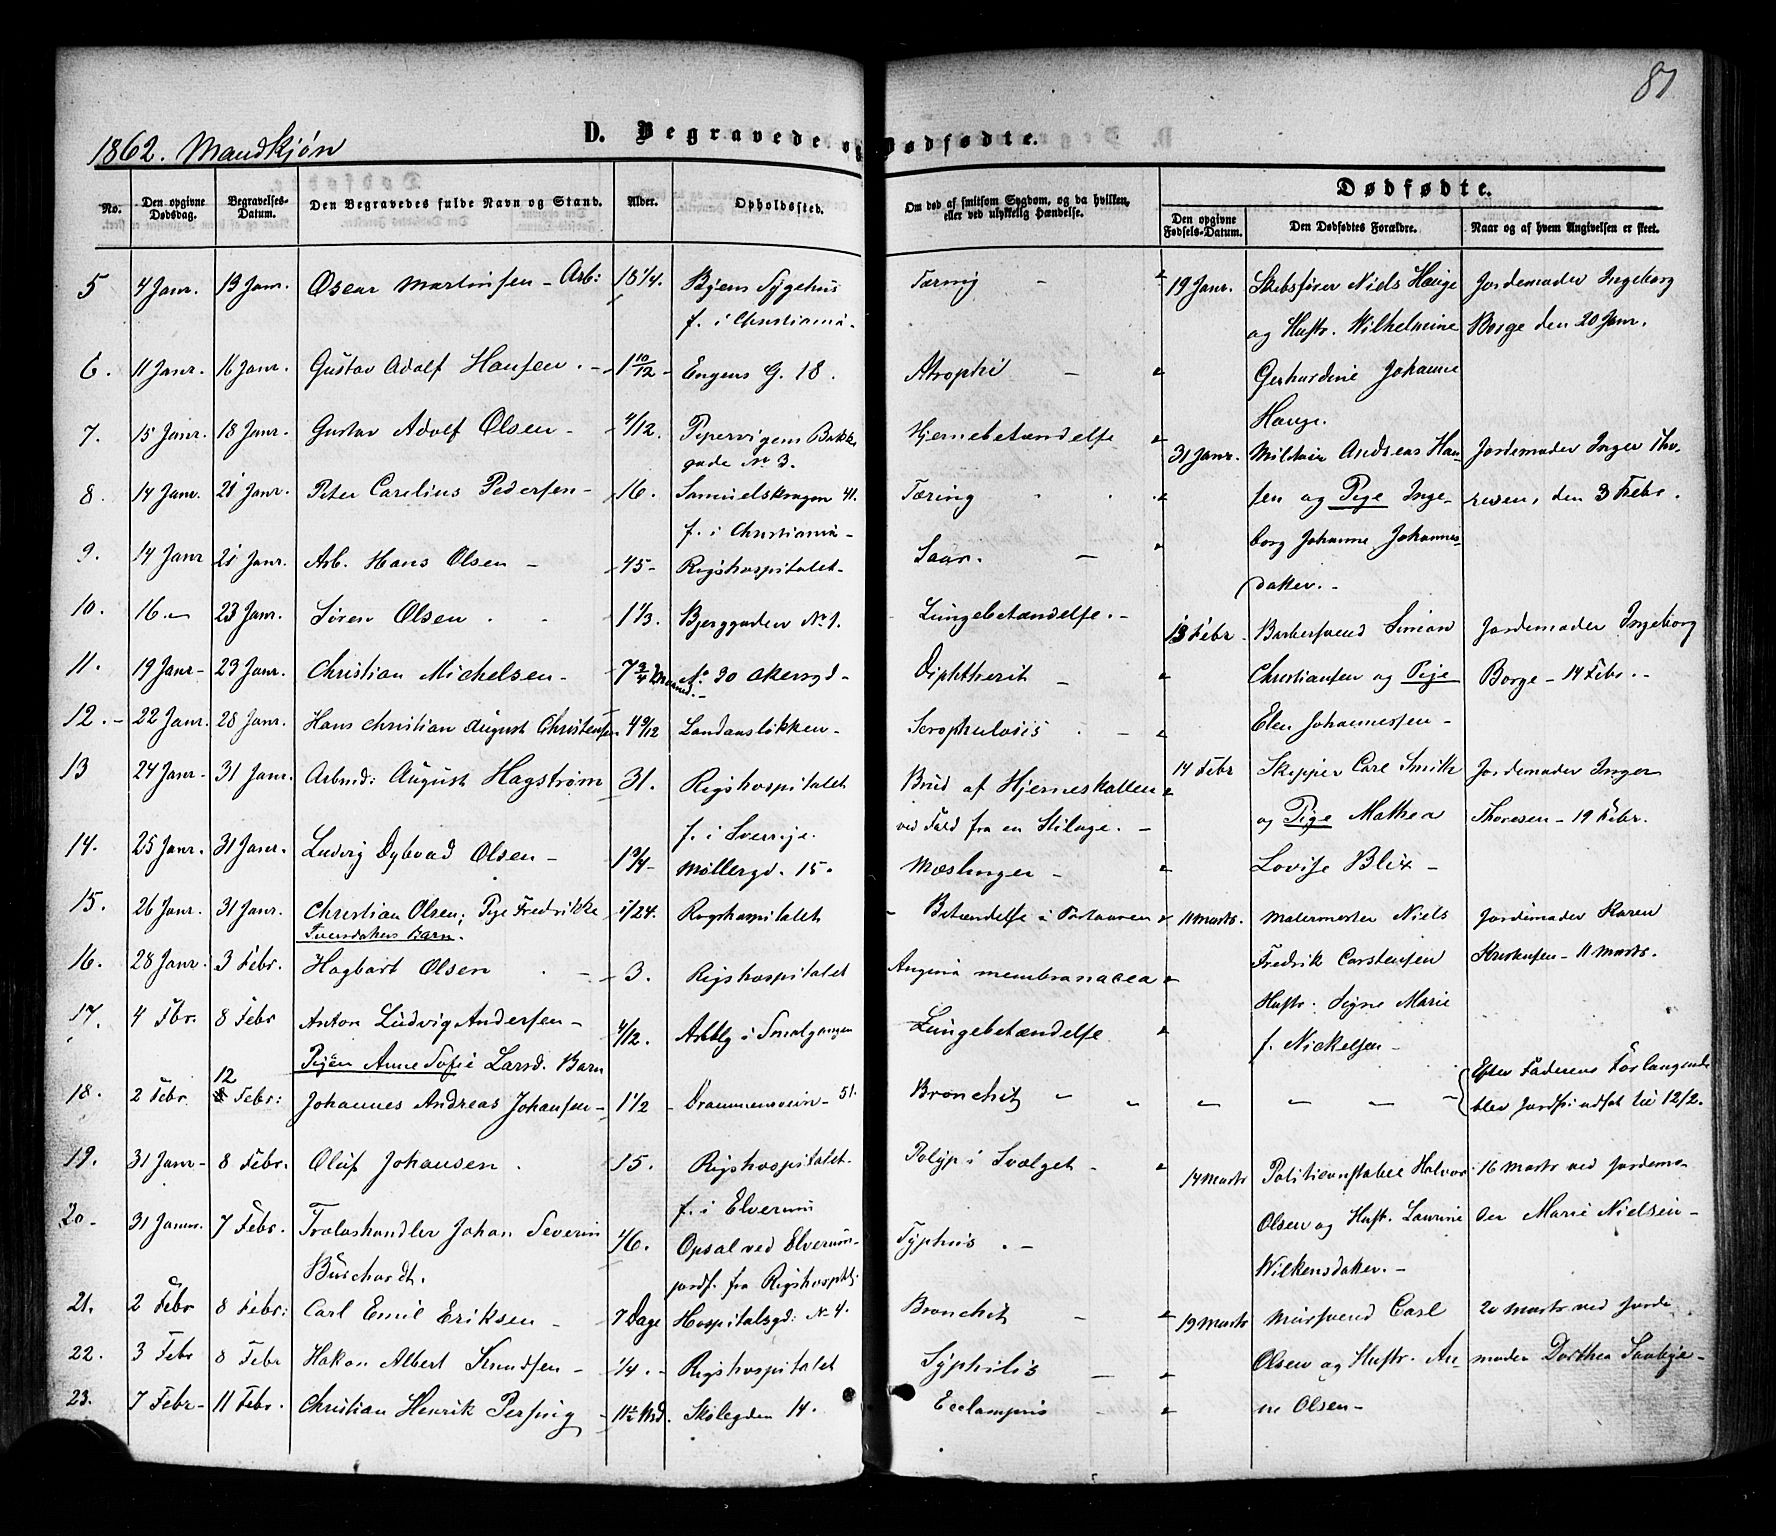 87
1862. Mandkjøn
D. Begravede og Dødfødte.
No.
Den opgivne Dødsdag.
Begravelses-Datum.
Den Begravedes fulde Navn og Stand.
Alder.
Opholdssted.
Om død af smitsom Sygdom, og da hvilken, eller ved ulykkelig Hændelse.
Dødfødte.
Den opgivne Fødsels-Datum.
Den Dødfødtes Forældre.
Naar og af hvem Angivelsen er skeet.
5 4 Janr. 13 Janr. Oscar Martinsen - Arb: 18 1/4. Byens Sygehus Tæring -
f. i Christiania.
6. 11 Janr. 16 Janr. Gustav Adolf Hansen. - 1 10/12 - Engens G. 18. Atrophi -
7. 15 Janr. 18 Janr. Gustav Adolf Olsen - 4/12. Pipervigens Bakke Hjernebetændelse
gade No 3.
8. 14 Janr. 21 Janr. Peter Carelius Pedersen - 16. Samuelskragen 41. Tæring
f. i Christiania -
9. 14 Janr 21 Janr. Arb. Hans Olsen - 45 - Rigshospitalet - Saar. -
10. 16. - 23 Janr. Søren Olsen 1 1/3. Bjerggaden No 1. Lungebetændelse. -
11. 19 Janr - 23 Janr. Christian Michelsen - 7 3/4 No 30 Akersgd - Diphtherit -
12. - 22 Janr. 28 Janr. Hans Christian August Christensen 4 9/12 Landansløkken - Scrophulosis -
13 24 Janr - 31 Janr. Arbmd: August Hagstrøm 31. Rigshospitalet Brud af Hjerneskallen
f. i Sverrije. ved Fald fra en Stilage. -
14. 25 Janr. 31 Janr. Ludvig Dybvad Olsen - 1 3/4 - Møllergd. 15. Mæslinger -
15. 26 Janr. 31 Janr. Christian Olsen, Pige Fredrikke 1/24. Rigshospitalet - Betændelse i
Barn.
16. 28 Janr. 3 Febr. Hagbart Olsen - 3. Rigshospitalet Angina membranacea
17. 4 Fbr. 8 Febr Anton Ludvig Andersen - 4/12. i Smalgangen Lungebetændelse
Pigen Anne Sofie Larsd. Barn
18. 2 Febr 12 Febr: Johannes Andreas Johansen - 1 1/2 - Drammensvein - 51. Bronchit
19. 31 Janr - 8 Febr. Oluf Johansen 15. Rigshospitalet - Polyp i Svælget -
f. i Elverum
20 - 31 Janr. 7 Febr. Trælashandler Johan Severin 46. Opsal ved Elverum - Typhus. -
jordf. fra Rigshosptl.
21. 2 Febr 8 Febr: Carl Emil Eriksen - 7 Dage Hospitalsgd: No 4. Bronchit -
22. 3 Febr 8 Febr Hakon Albert Knudsen - 1/4. - Rigshospitalet Syphilis -
23. 7 Febr - 11 Febr. Christian Henrik - 11 1/2 Md. Skolegden 14. Ecclampsis
19 Janr. Skibsfører Niels Hauge Jordemoder Ingeborg
og Hustr. Wilhelmine Borge den 20 Janr.
Gerhardine Johanne
Hauge.
31 Janr. Militair Andreas Han- Jordemoder Inger Tho-
sen og Pige Inge- resen, den 3 Febr.
borg Johanne Johannes-
datter. -
13 Febr. Barbersvend Simon Jordemoder Ingeborg
Christiansen og Pige Borge - 14 Febr. -
Elen Johannessen -
14 Febr Skipper Carl Smith Jordemoder Inger
og Pige Mathea Thoresen - 19 Febr.
Lovise Blix -
11 Marts. Malermester Niels Jordemoder Karen
Fredrik Carstensen Kristensen - 11 Marts.
Hustr. Signe Marie
f. Nickelsen -
Efter Faderens Forlangende
blev Jordf. udsat til 12/2.
14 Marts Politiconstabel Halvor 16 Marts ved Jordemo-
Olsen og Hustr. Laurine der Marie Nielsen -
Wilkensdatter. -
19 Marts Mursvend Carl 20 Marts ved Jorde
Olsen og Hustr. An- moder Dorthea
ne Olsen -